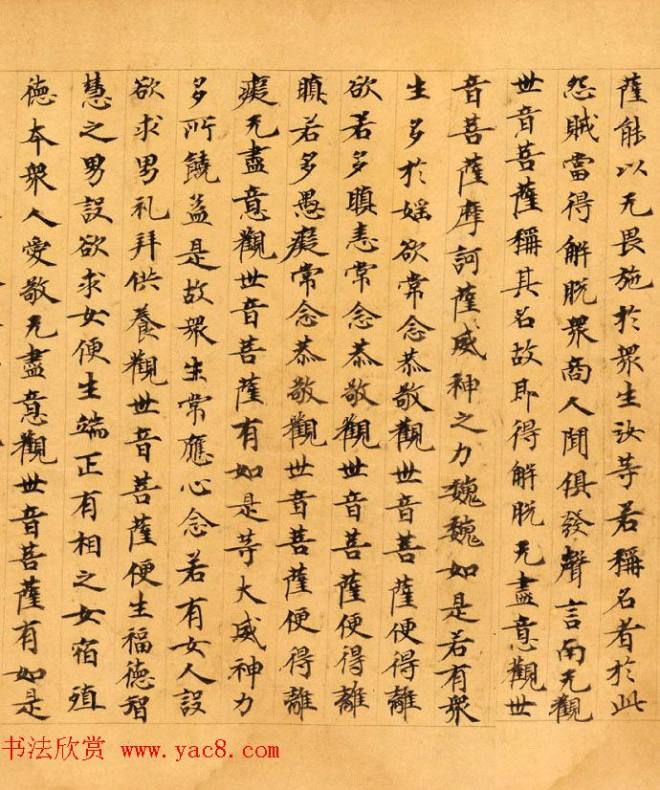 薩能以无畏施於眾生汝等若稱名者於此
怨賊當得解脫眾商人聞俱發聲言南无觀
世音菩薩稱其名故即得解脫无盡意觀世
音菩薩摩訶薩威神之力巍巍如是若有眾
生多於婬欲常念恭敬觀世音菩薩便得離
欲若多瞋恚常念恭敬觀世音菩薩便得離
瞋若多愚癡常念恭敬觀世音菩薩便得離
癡无盡意觀世音菩薩有如是等大威神力
多所饒益是故眾生常應心念若有女人設
欲求男礼拜供養觀世音菩薩便生福德智
慧之男設欲求女便生端正有相之女宿殖
德本眾人愛敬无盡意觀世音菩薩有如是
书法欣赏 www.yac8.com